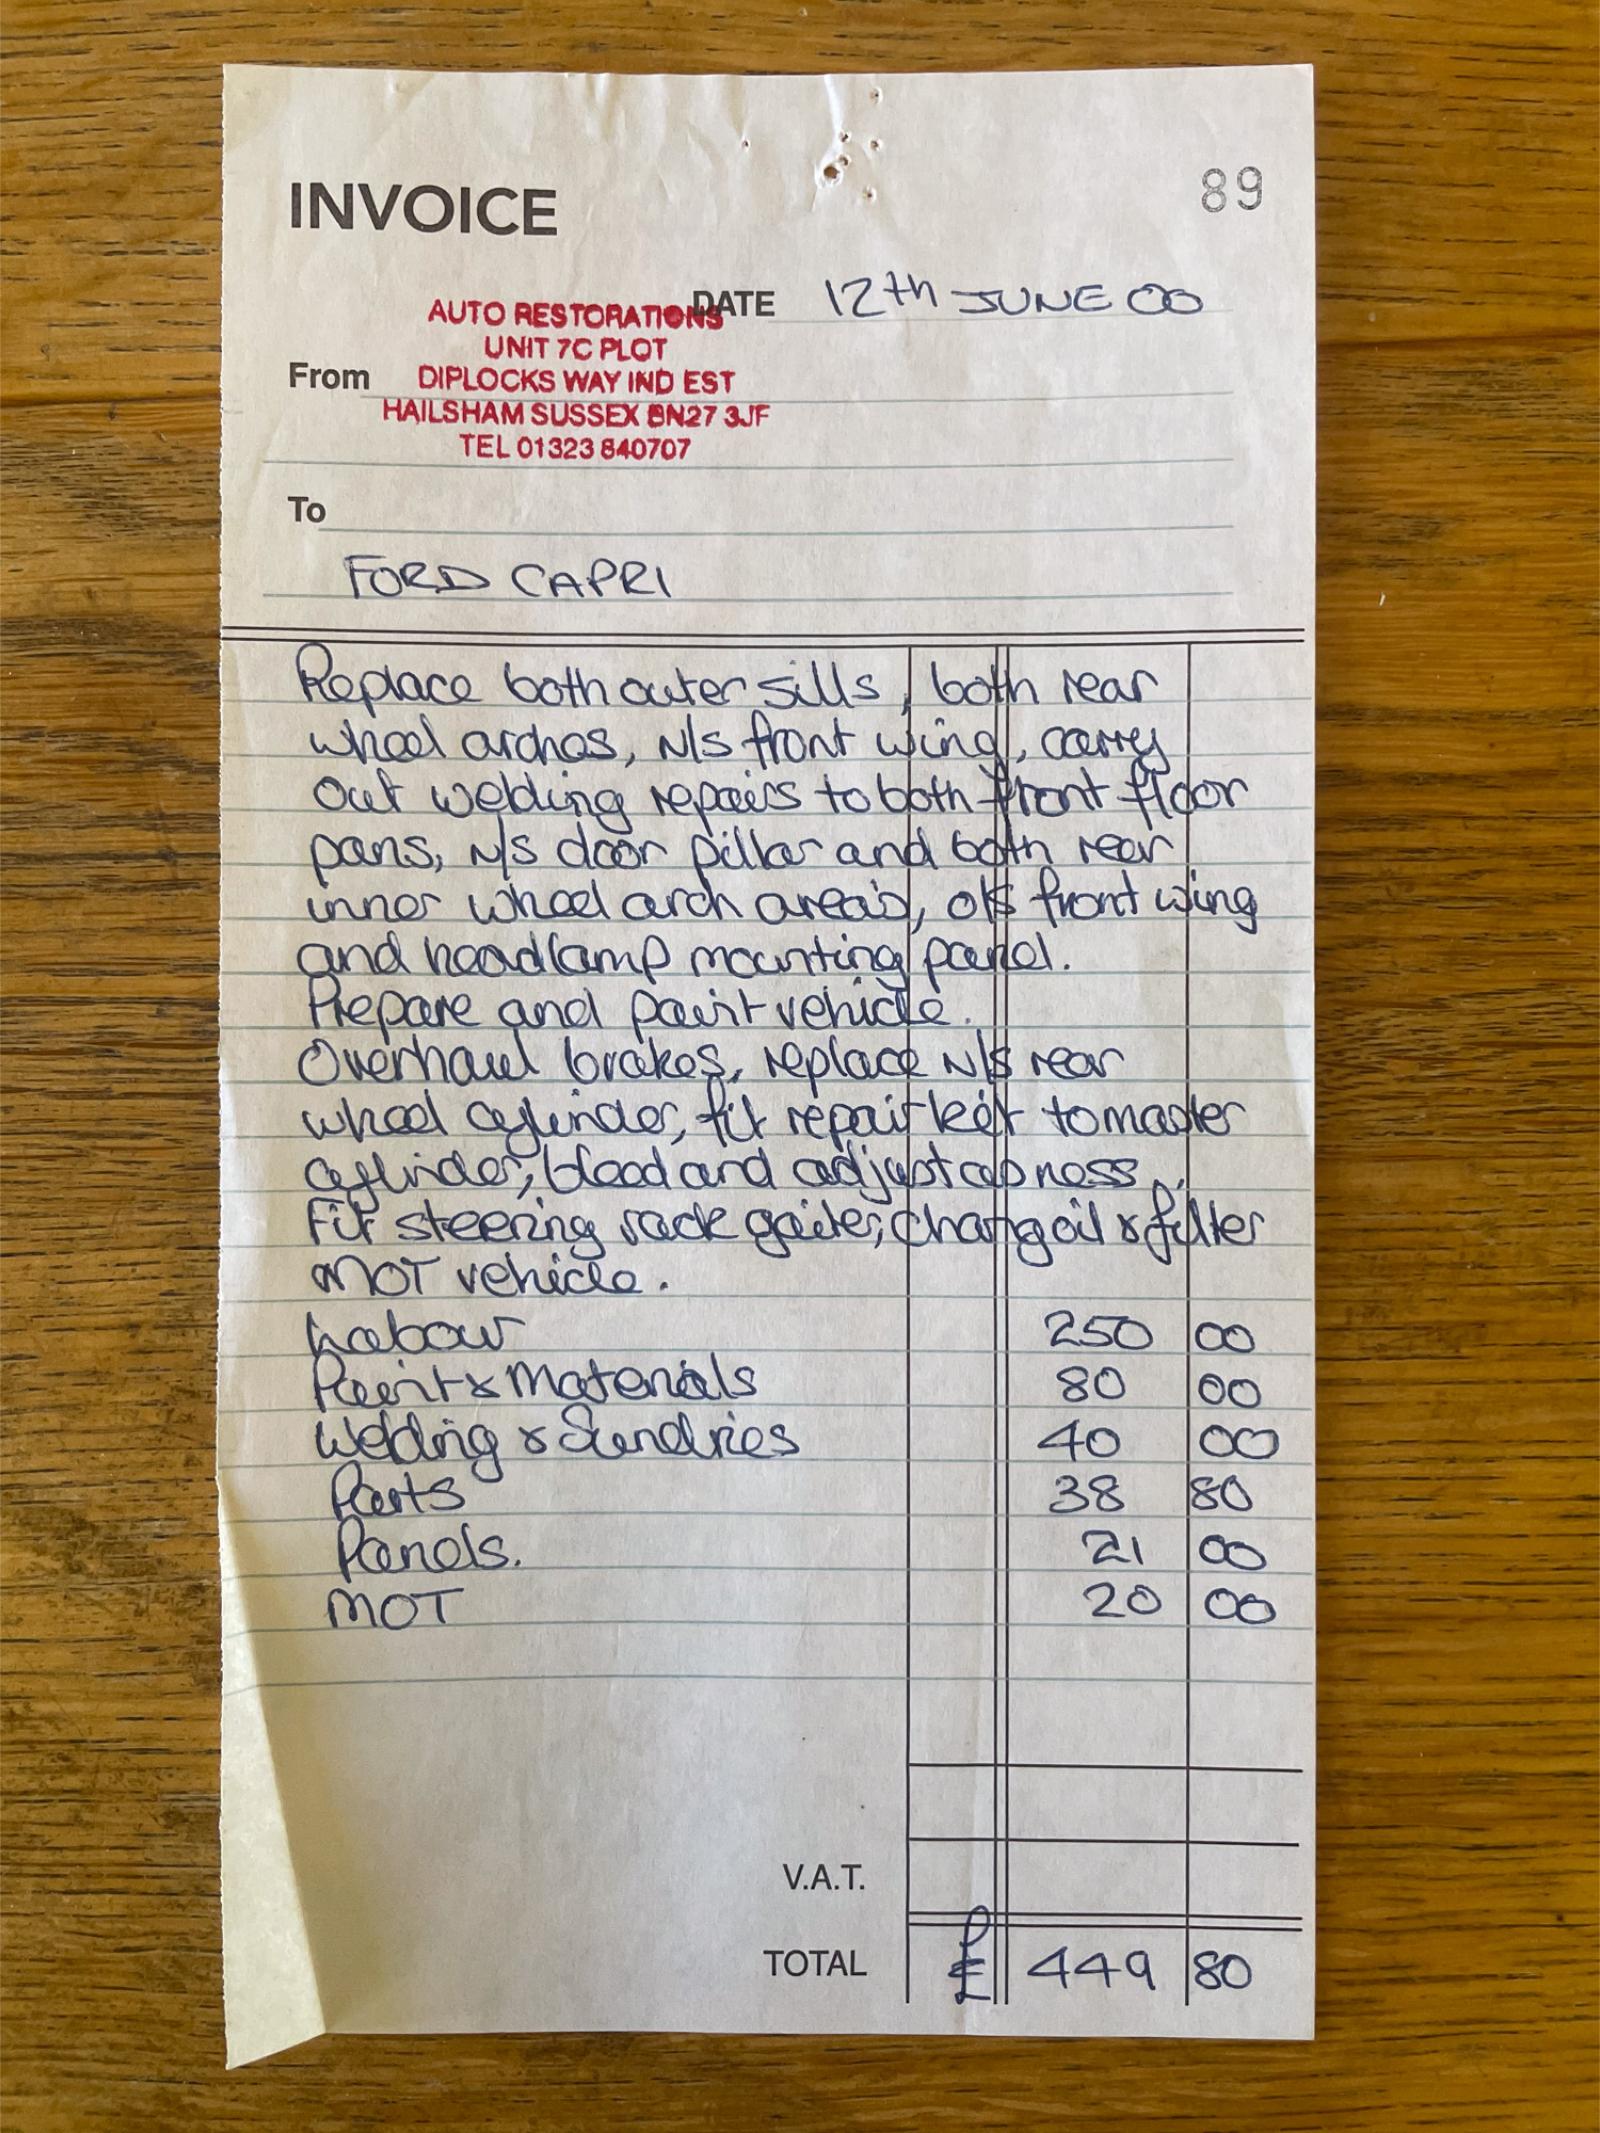 INVOICE
89
DATE 12th JUNE 00
AUTO RESTORATIONS
UNIT 7C PLOT
From
DIPLOCKS WAY IND EST
HAILSHAM SUSSEX BN27 3JF
TEL 01323 840707
To
FORD CAPRI
Replace both outer sills, both rear
wheel arches, N/s front wing, carry
out welding repairs to both front floor
pans, N/s door pillar and both rear
inner wheel arch areas, o/s front wing
and headlamp mounting panel.
Prepare and paint vehicle.
Overhaul brakes, replace N/s rear
wheel cylinder, fit repair kit to master
cylinder, bleed and adjust as ness.
Fit steering rack gaiter, chang oil & filter
MOT vehicle.
Labour 250 00
Paint & Materials 80 00
Welding & Sundries 40 00
Parts 38 80
Panels. 21 00
MOT 20 00
V.A.T.
TOTAL £ 449 80